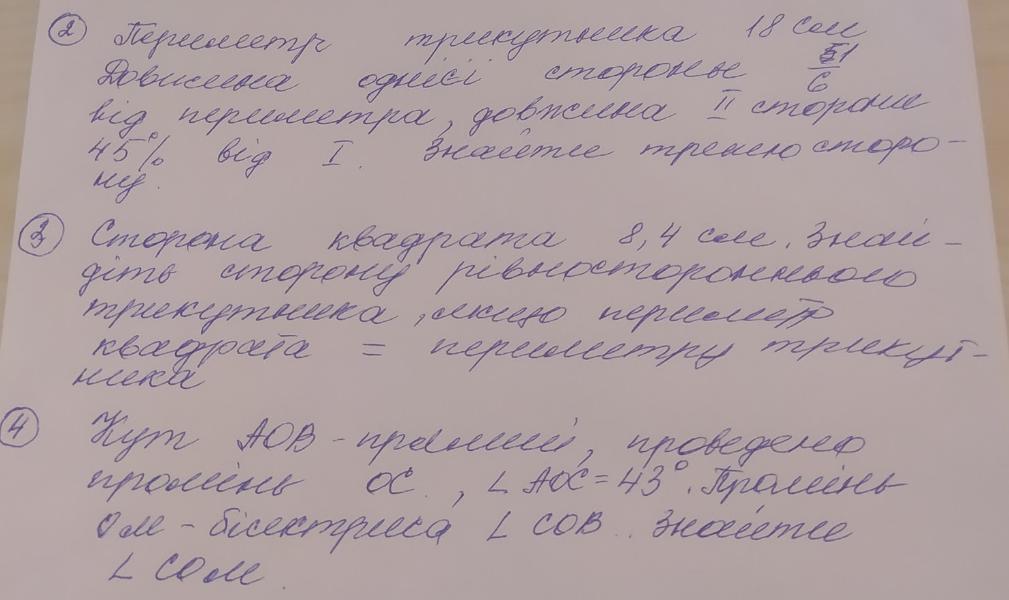 2 Периметр трикутника 18 см
Довжина однієї сторони 1/6
від периметра, довжина II сторони
45% від I. Знайти третю сторо-
ну.
3 Сторона квадрата 8,4 см. Знай-
діть сторону рівностороннього
трикутника, якщо периметр
квадрата = периметру трикут-
ника
4 Кут АОВ - прямий, проведено
промінь ОС, ∠ АОС = 43°. Промінь
ОМ - бісектриса ∠ СОВ. Знайти
∠ СОМ.